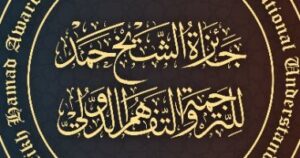 جائزة الشيخ حمد
للترجمة والتفاهم الدولي
ikh Hamad Award
ational Understand